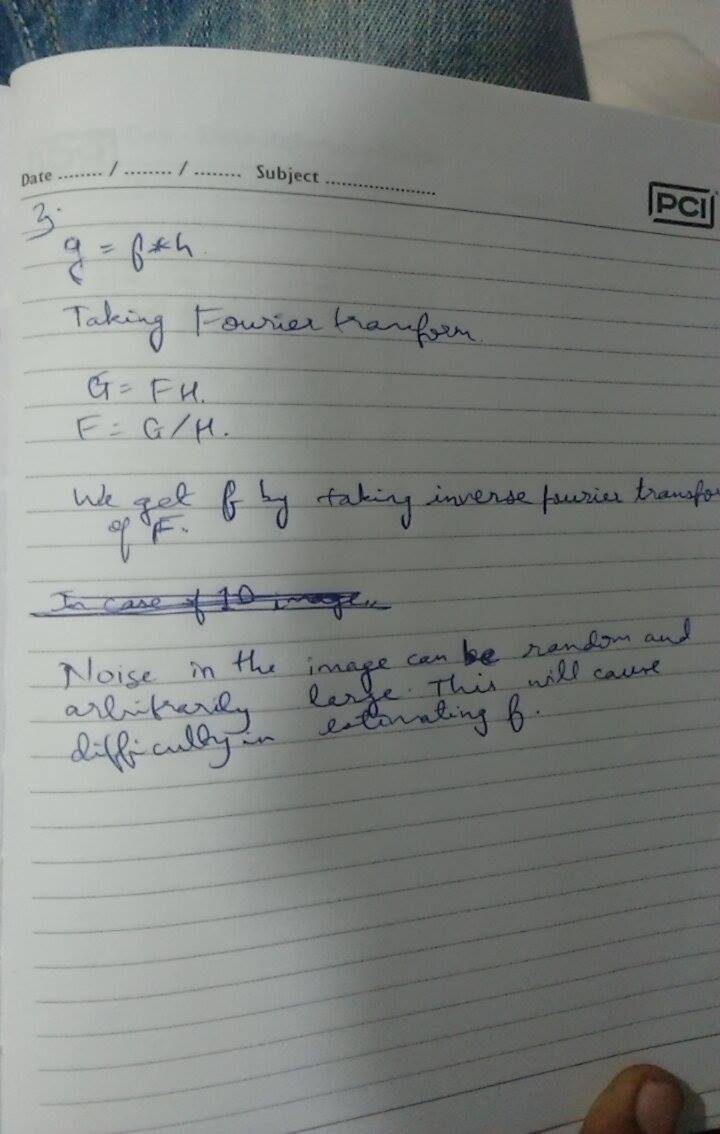 Date ......../......../........ Subject ....................
PCI
3.
g = f * h.
Taking Fourier tranform.
G = FH.
F = G/H.
We get f by taking inverse fourier transfo
of F.
In case of 1D image..
Noise in the image can be random and
arbitrarily large. This will cause
difficulty in estimating f.